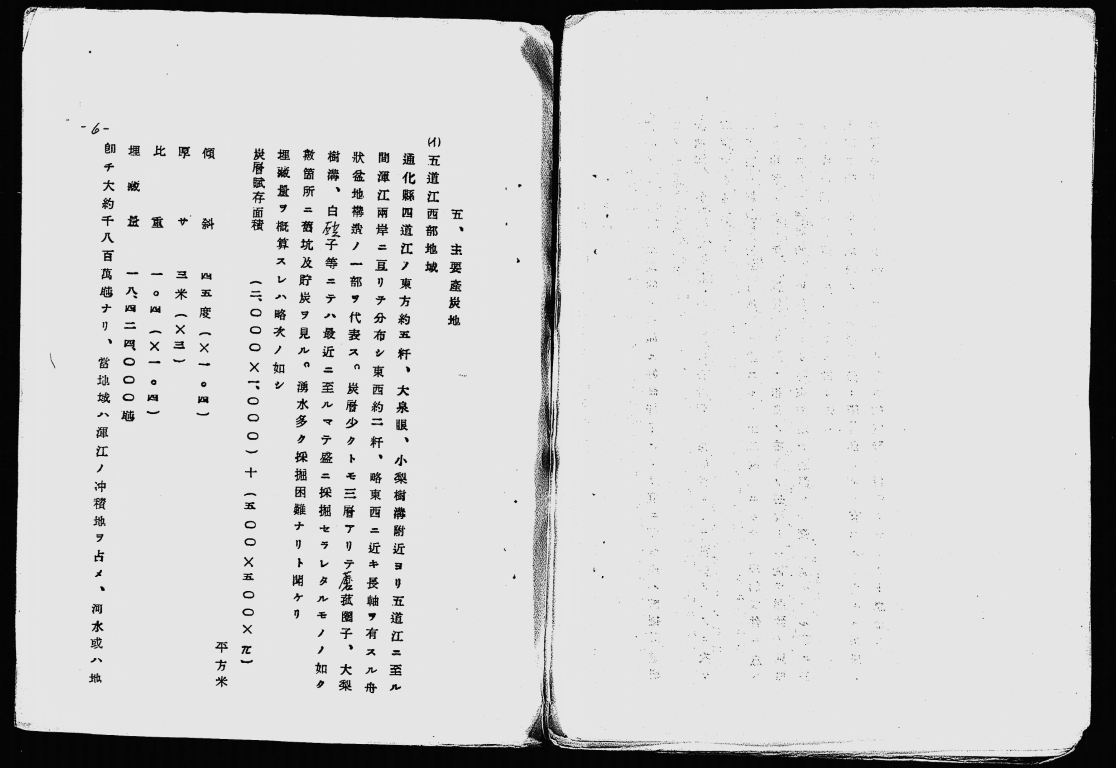 五、主要產炭地
(イ)五道江西部地域
通化縣四道江ノ東方約五粁、大泉眼、小梨樹溝附近ヨリ五道江ニ至ル
間渾江兩岸ニ亘リテ分布シ東西約二粁、略東西ニ近キ長軸ヲ有スル舟
狀盆地構造ノ一部ヲ代表ス。炭層少クトモ三層アリテ蘑菰圈子、大梨
樹溝、白砬子等ニテハ最近ニ至ルマテ盛ニ採掘セラレタルモノノ如ク
數箇所ニ舊坑及貯炭ヲ見ル。湧水多ク採掘困難ナリト聞ケリ
埋藏量ヲ概算スレハ略次ノ如シ
炭層賦存面積 (二、〇〇〇×一、〇〇〇)十(五〇〇×五〇〇×π)
平方米
傾斜 四五度(×一。四)
厚サ 三米(×三)
比重 一。四(×一。四)
埋藏量 一八、四二四、〇〇〇瓲
卽チ大約千八百萬瓲ナリ、當地域ハ渾江ノ冲積地ヲ占メ、河水或ハ地
-6-